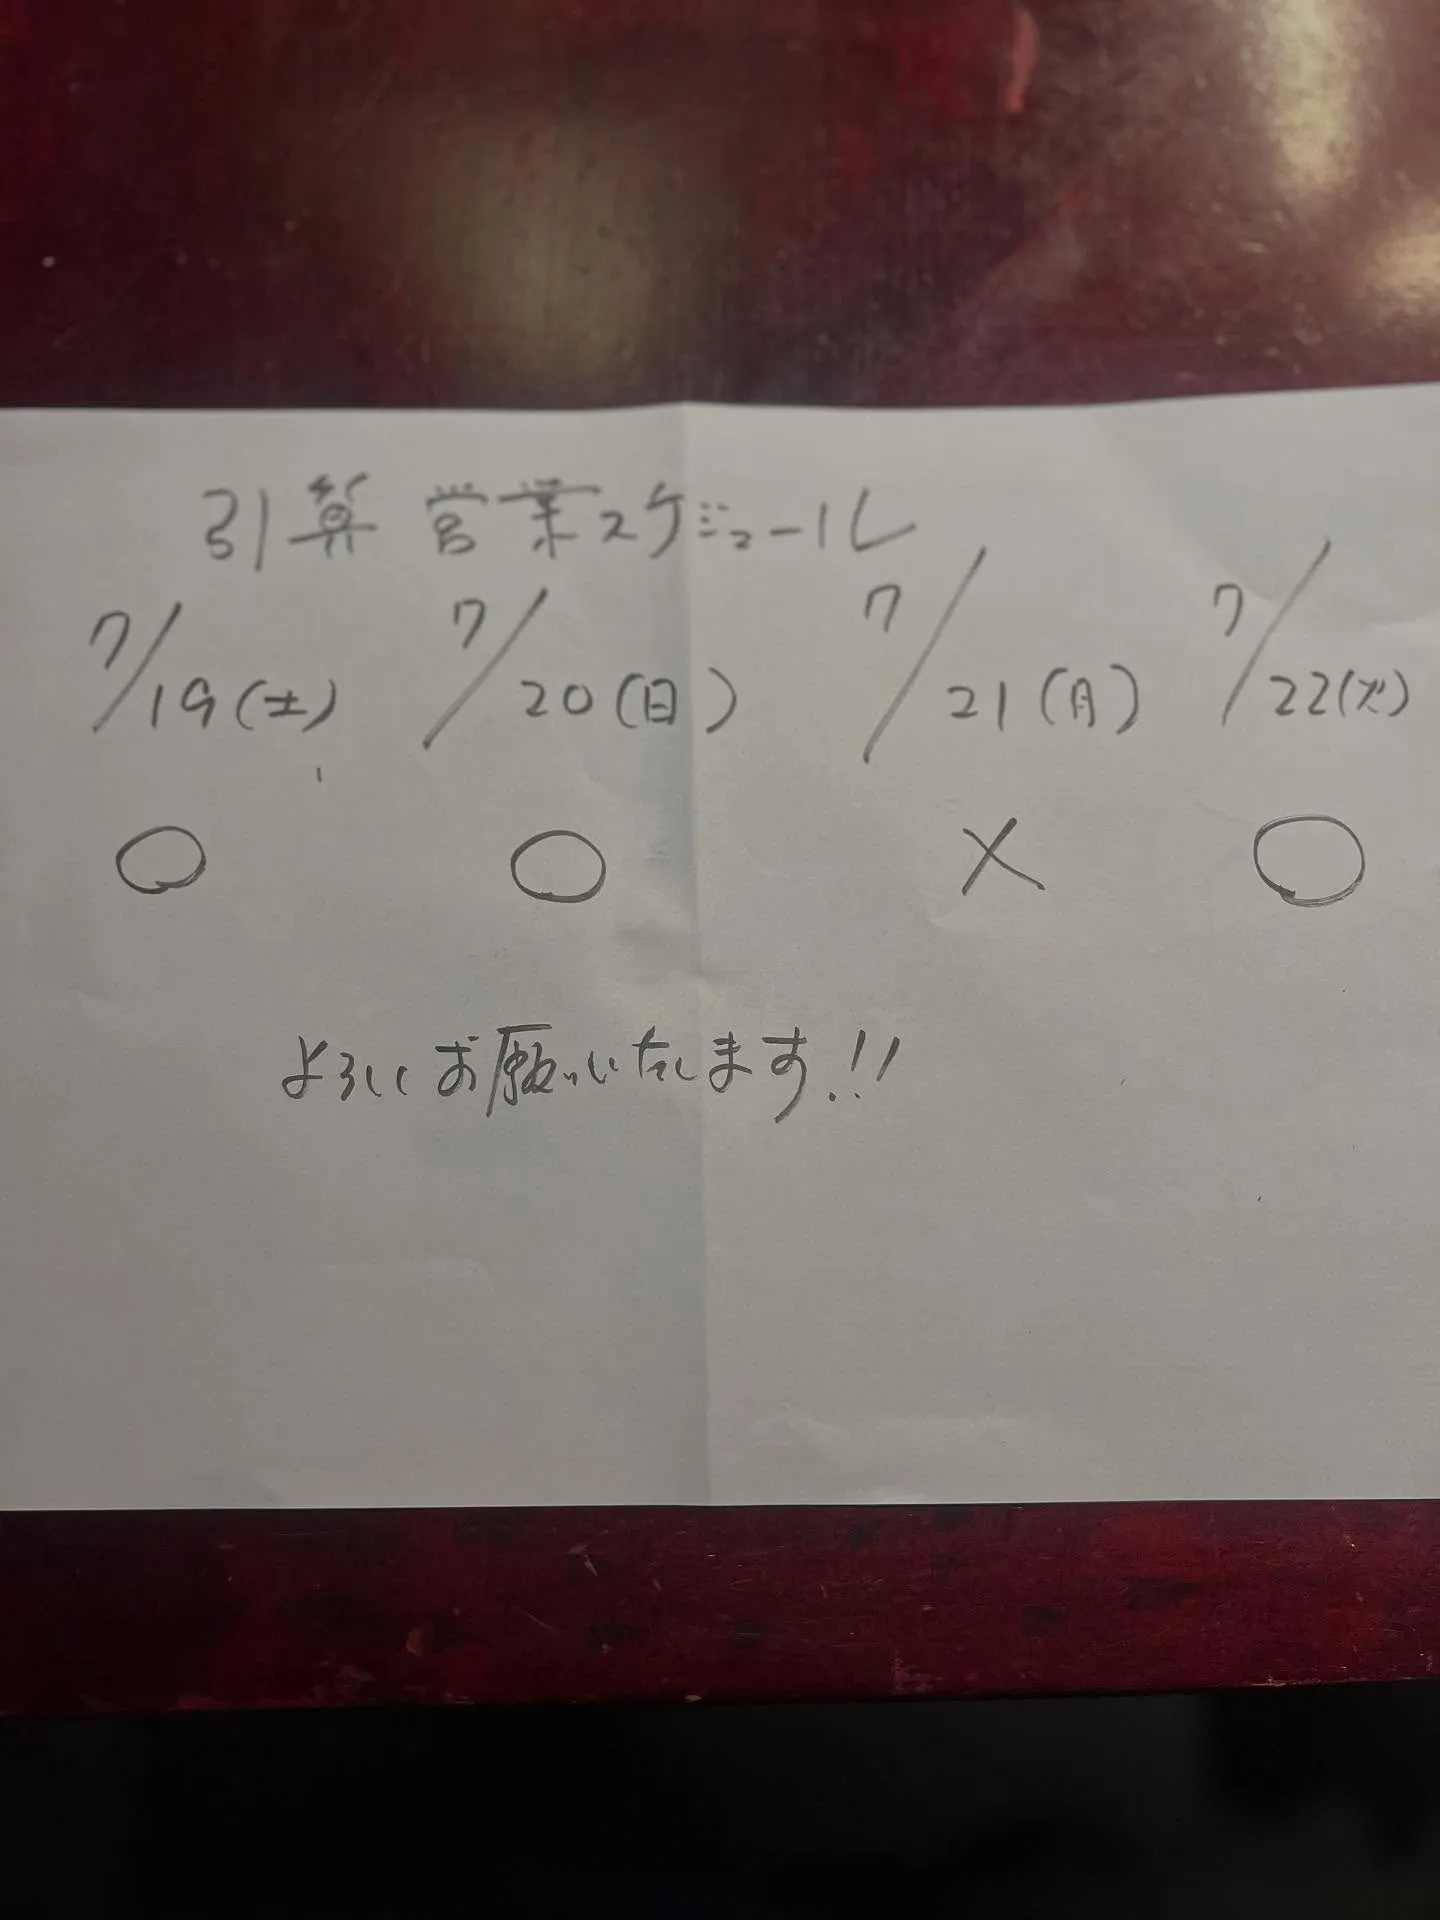 引算 営業スケジュール
7/19(土) 7/20(日) 7/21(月) 7/22(火)
○ ○ × ○
よろしくお願いいたします!!